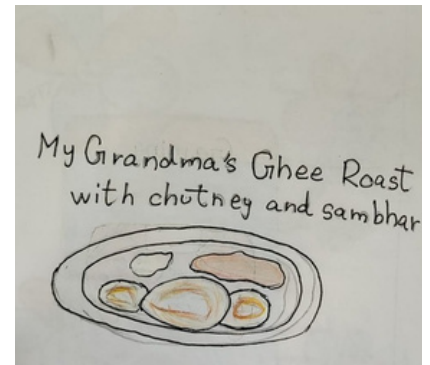 My Grandma's Ghee Roast
with chutney and sambhar